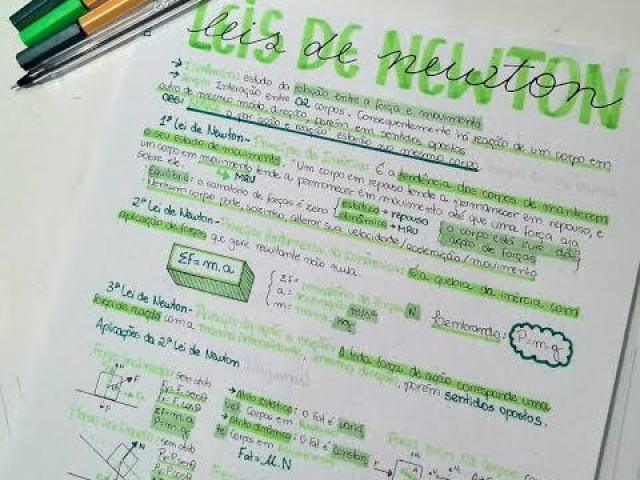 LEIS DE NEWTON
leis de newton
→ Dinâmica: estudo da relação entre a força e movimento
→ Interação entre 02 corpos. Consequentemente há reação de um corpo em
outro de mesmo módulo, direção, porém em sentidos opostos
OBS: ação e reação estarão no mesmo corpo
1ª Lei de Newton - Princípio da Inércia: É a tendência dos corpos de manterem
o seu estado de movimento. "Um corpo em repouso tende a permanecer em repouso, e
um corpo em movimento tende a permanecer em movimento até que uma força aja
sobre ele. MRU
Equilíbrio: o somatório de forças é zero { estático → repouso
dinâmico → MRU
o corpo está livre da
ação de forças
Nenhum corpo pode, sozinho, alterar sua velocidade/aceleração/movimento
2ª Lei de Newton - Princípio Fundamental da Dinâmica: é a quebra da inércia com
aplicação de forças que gere resultante não nula.
ΣF = m.a
ΣF =
a =
m =
N
m/s²
kg
Lembrando: P=m.g
3ª Lei de Newton - Princípio da ação e reação: A toda força de ação corresponde uma
força de reação com a mesma intensidade, mesma direção, porém sentidos opostos.
Aplicações da 2ª Lei de Newton
Força inclinada: sem atrito
ΣF=m.a
P=m.g
→ Atrito estático: O Fat é
Corpos em
→ Atrito dinâmico: O Fat é constan
te Corpos em
Fat=μ.N
Plano inclinado: sem atrito